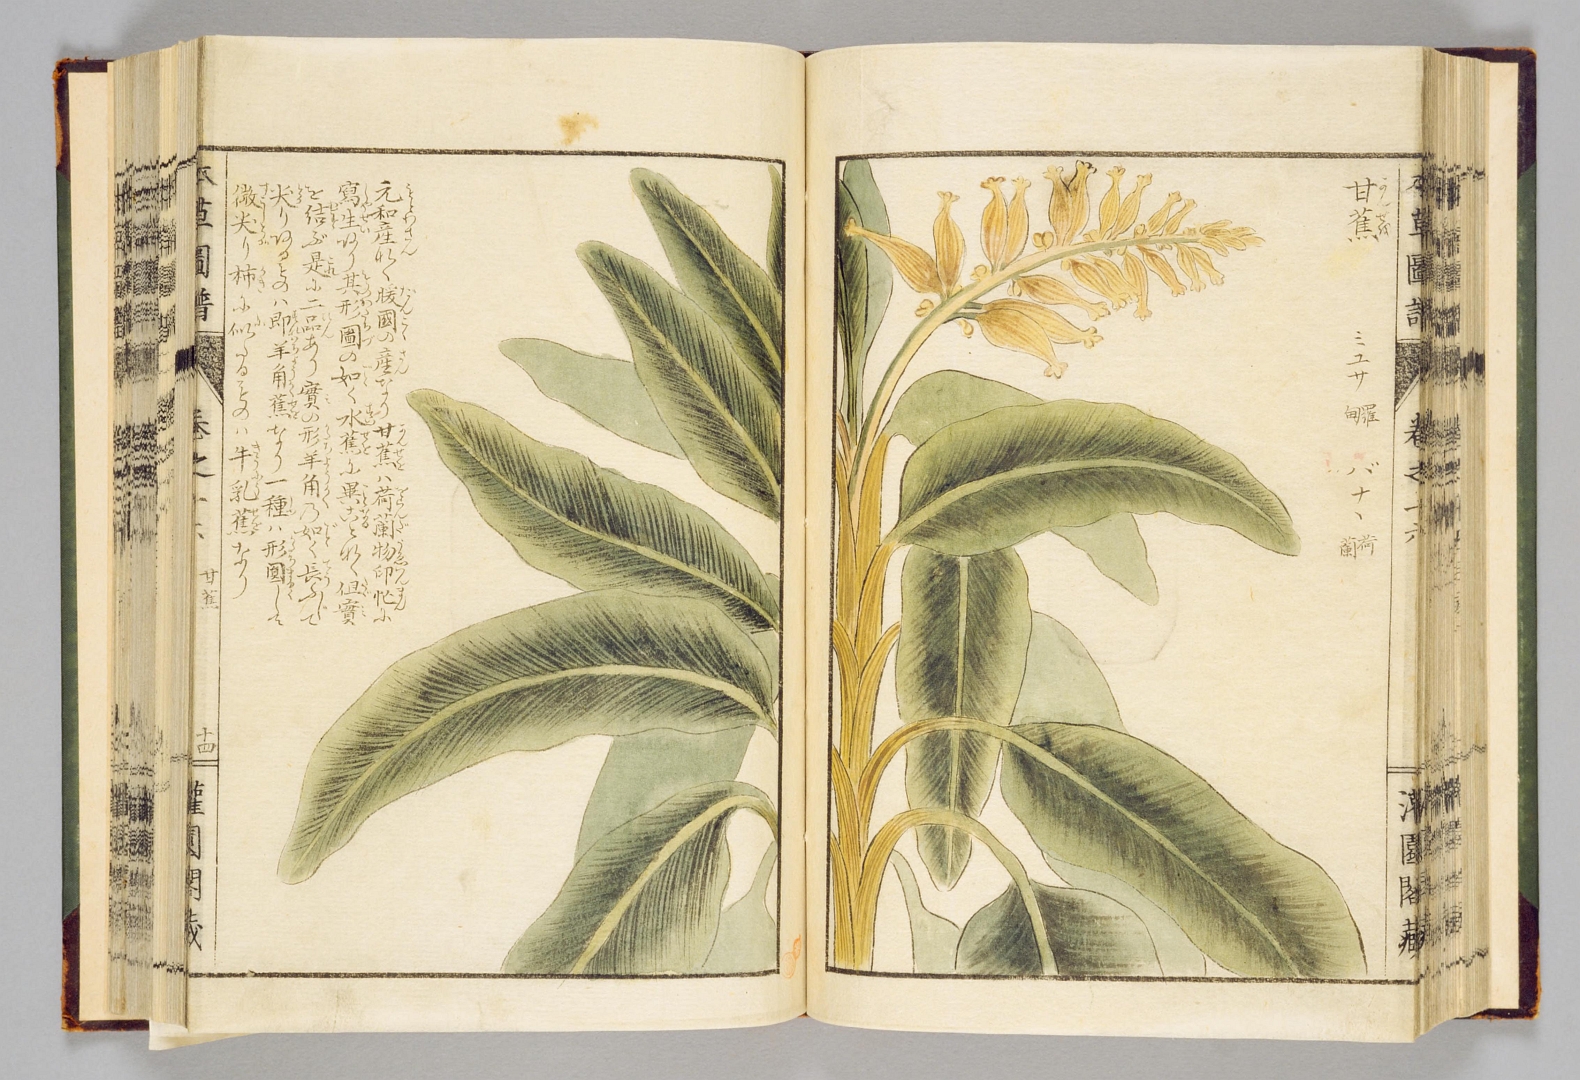 本草圖譜
卷之十六
灌園閣藏
甘蕉
かんせう
ミユサ 羅甸
バナヽ 荷蘭
元和産なく暖國の産なり甘蕉ハ荷蘭物印忙に
寫生あり其形圖の如く水蕉に異ことなく但實
を結ぶ是に二品あり實の形羊角の如く長ふして
尖りあるものハ即羊角蕉なり一種ハ形圓して
微尖り柿に似たるものハ牛乳蕉なり
本草圖譜
卷之十六
甘蕉
十四
灌園閣藏